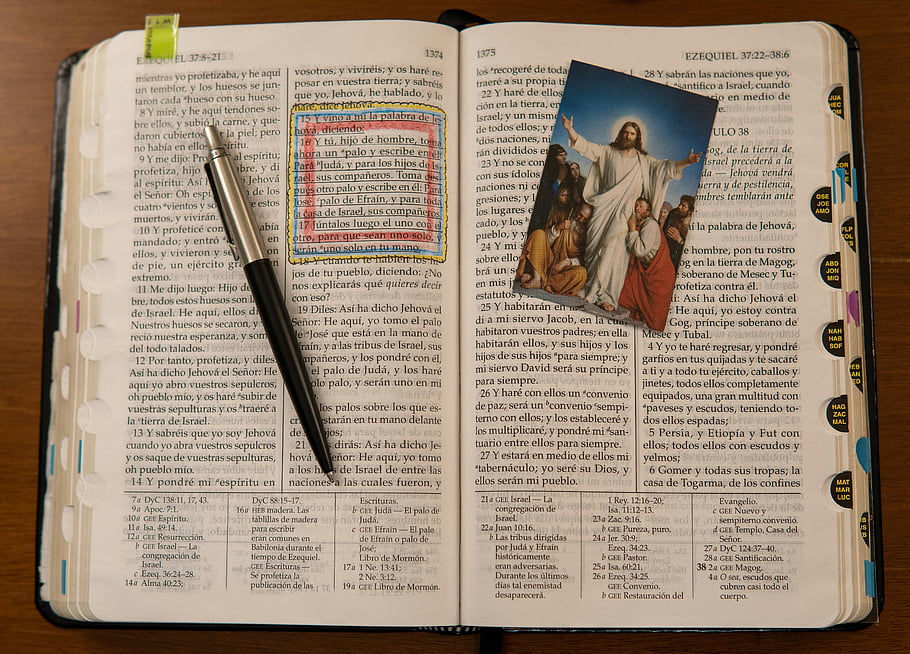 EZEQUIEL 37:8–21
1374
mientras yo profetizaba, y he aquí
un temblor, y los huesos se jun-
taron cada ªhueso con su hueso.
8 Y miré, y he aquí tendones so-
bre ellos, y subió la carne, y que-
taron cubiertos por la piel; pero
no había en ellos espíritu.
9 Y me dijo: Profetiza al espíritu;
profetiza, hijo de hombre, y di
al espíritu: Así ha dicho Jehová
el Señor: Oh espíritu, ven de los
cuatro ªvientos y sopla sobre estos
muertos, y vivirán.
10 Y profeticé como me había
mandado; y entró
ellos, y vivieron y
de pie, un ejército gra
extremo.
11 Me dijo luego: Hijo de
bre, todos estos huesos son la
de Israel. He aquí, ellos di
Nuestros huesos se secaron, y
reció nuestra esperanza, y som
del todo talados.
12 Por tanto, profetiza, y diles:
Así ha dicho Jehová el Señor: He
aquí yo abro vuestros sepulcros,
oh pueblo mío, y os haré ªsubir de
vuestras sepulturas y os ᵇtraeré a
la ᶜtierra de Israel.
13 Y sabréis que yo soy Jehová
cuando yo abra vuestros sepulcros
y os saque de vuestras sepulturas,
oh pueblo mío.
14 Y pondré mi ªespíritu en
vosotros, y viviréis; y os haré re-
posar en vuestra tierra; y sabréis
que yo, Jehová, he hablado, y lo
haré, dice Jehová.
15 Y vino a mí la palabra de Je-
hová, diciendo:
16 Y tú, hijo de hombre, toma
ahora un ªpalo y escribe en él:
Para ᵇJudá, y para los hijos de Is-
rael, sus compañeros. Toma des-
pués otro palo y escribe en él: Para
José, ᶜpalo de Efraín, y para toda
la casa de Israel, sus compañeros.
17 Y júntalos luego el uno con el
otro, para que sean uno solo, y
serán ªuno solo en tu mano.
18 Y cuando te hablen los hi-
jos de tu pueblo, diciendo: ¿No
nos explicarás qué quieres decir
con eso?
19 Diles: Así ha dicho Jehová el
Señor: He aquí, yo tomo el palo
de ªJosé que está en la mano de
fraín, y a las tribus de Israel, sus
mpañeros, y los pondré con él,
el palo de Judá, y los haré
palo, y serán uno en mi
los palos sobre los que es-
estarán en tu mano delante
de
21 dirás: Así ha dicho Je-
hová el Señor: He aquí, yo tomo
a los de Israel de entre las
naciones a las cuales fueron, y
7a DyC 138:11, 17, 43.
9a Apoc. 7:1.
10a GEE Espíritu.
11a Isa. 49:14.
12a GEE Resurrección.
b GEE Israel — La
congregación de
Israel.
c Ezeq. 36:24–28.
14a Alma 40:23;
DyC 88:15–17.
16a HEB madera. Las
tablillas de madera
para escribir
eran comunes en
Babilonia durante el
tiempo de Ezequiel.
GEE Escrituras —
Se profetiza la
publicación de las
Escrituras.
b GEE Judá — El palo de
Judá.
c GEE Efraín — El palo
de Efraín o palo de
José;
Libro de Mormón.
17a 1 Ne. 13:41;
2 Ne. 3:12.
19a GEE Libro de Mormón.
1375
EZEQUIEL 37:22–38:6
los ªrecogeré de todas
traeré a su propia ti
22 Y haré de ellos
ción en la tierra, en
Israel; y un mism
de todos ellos; y
rán divididos en
23 Y no se con
con sus ídolos
naciones ni c
gresiones; y l
los lugares e
cado, y
pueblo, y y
24 Y mi s
sobre ellos
brá un s
en mis
estatutos y
25 Y habitarán en
di a mi siervo Jacob, en la cual
habitaron vuestros padres; en ella
habitarán ellos, y sus hijos y los
hijos de sus hijos ªpara siempre; y
mi siervo David será su príncipe
para siempre.
26 Y haré con ellos un ªconvenio
de paz; será un ᵇconvenio ᶜsempi-
terno con ellos; y los estableceré y
los multiplicaré, y pondré mi ᵈsan-
tuario entre ellos para siempre.
27 Y estará en medio de ellos mi
ªtabernáculo; yo seré su Dios, y
ellos serán mi pueblo.
28 Y sabrán las naciones que yo,
ªsantifico a Israel, cuando
en medio de
CAPÍTULO 38
og, de la tierra de
Israel precederá a la
da — Jehová vendrá
uerra y de pestilencia,
mbres temblarán ante
a mí la palabra de Jehová,
e hombre, pon tu rostro
en la tierra de Magog,
soberano de Mesec y Tu-
profetiza contra él.
Así ha dicho Jehová el
He aquí, yo estoy contra
Gog, príncipe soberano de
Mesec y Tubal.
4 Y yo te haré regresar, y pondré
garfios en tus quijadas y te sacaré
a ti y a todo tu ejército, caballos y
jinetes, todos ellos completamente
equipados, una gran multitud con
ªpaveses y escudos, teniendo to-
dos ellos espadas;
5 Persia, y Etiopía y Fut con
ellos; todos ellos con escudos y
yelmos;
6 Gomer y todas sus tropas; la
casa de Togarma, de los confines
21a GEE Israel — La
congregación de
Israel.
22a Juan 10:16.
b Las tribus dirigidas
por Judá y Efraín
históricamente
eran adversarias.
Durante los últimos
días tal enemistad
desaparecerá.
1 Rey. 12:16–20;
Isa. 11:12–13.
23a Zac. 9:16.
b GEE Pureza, puro.
24a Jer. 30:9;
Ezeq. 34:23.
b GEE Pastor.
25a Isa. 60:21.
26a Ezeq. 34:25.
GEE Convenio.
b GEE Restauración del
Evangelio.
c GEE Nuevo y
sempiterno convenio.
d GEE Templo, Casa del
Señor.
27a DyC 124:37–40.
28a GEE Santificación.
38 2a GEE Magog.
4a O sea, escudos que
cubren casi todo el
cuerpo.
JUA
HEC
ROM
COR
OSE
JOE
AMÓ
FLP
COL
ABD
JON
MIQ
NAH
HAB
SOF
HEB
HAG
ZAC
MAL
MAT
MAR
LUC